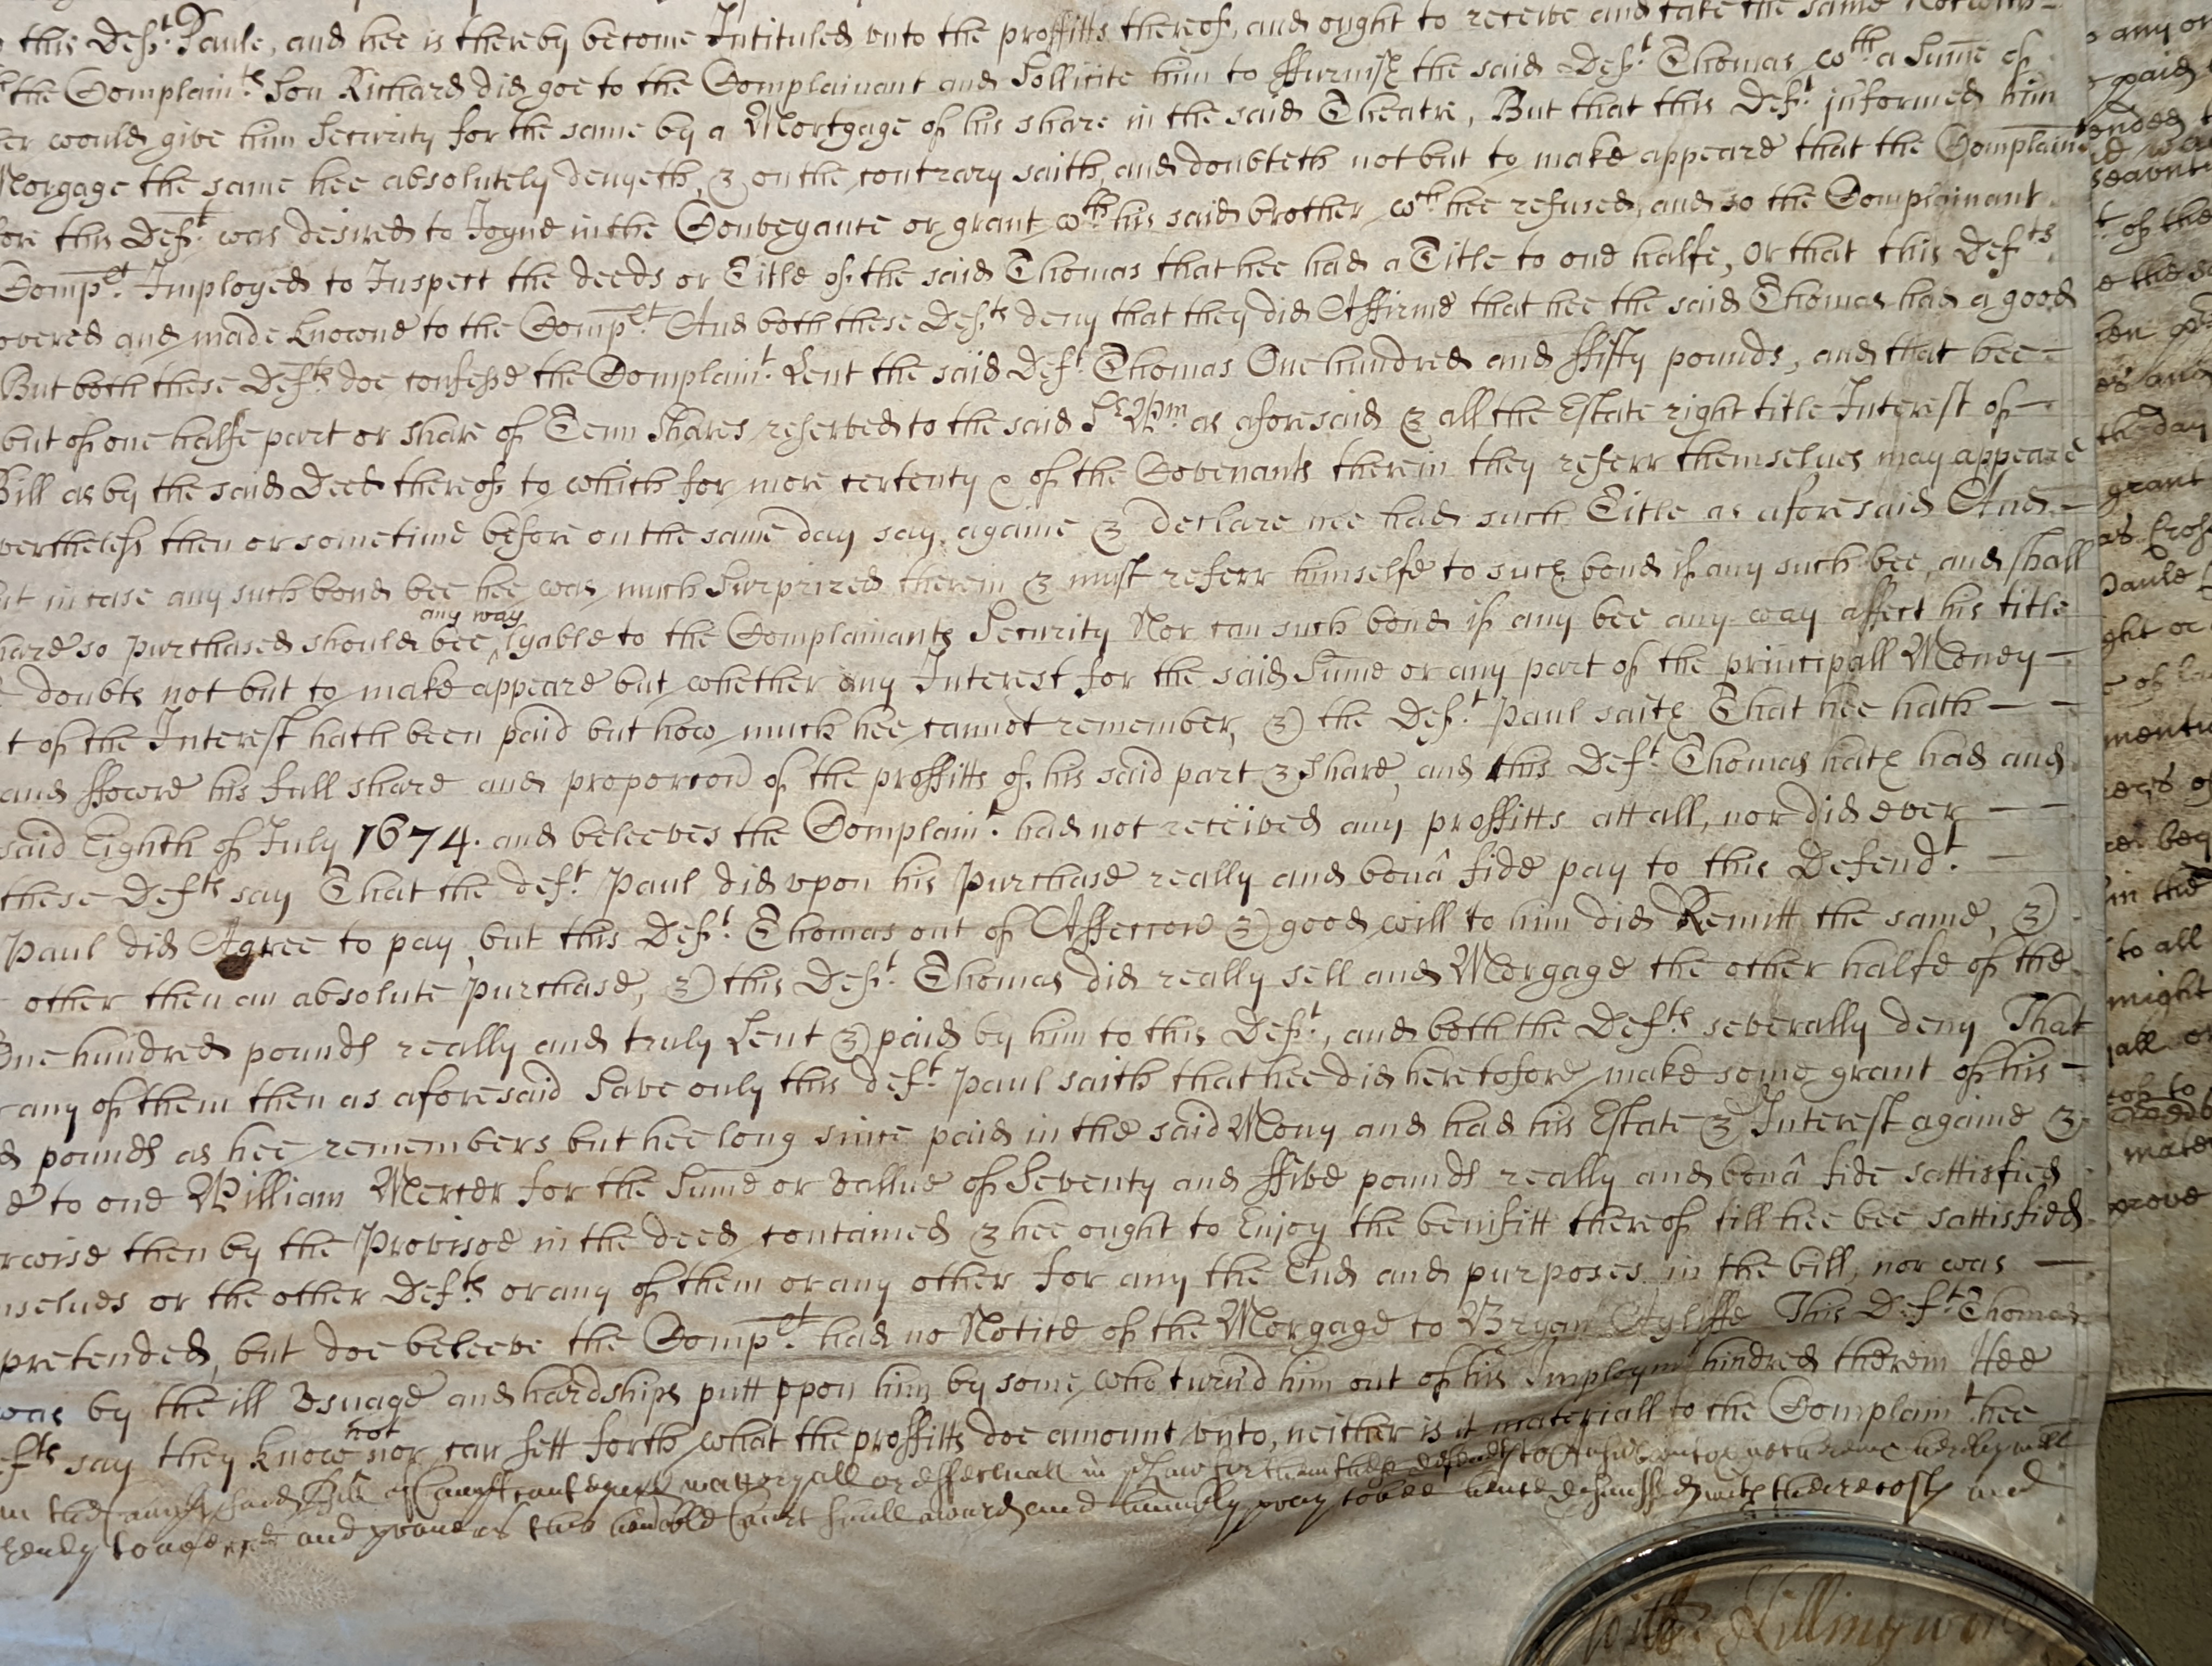 this Def.t Paule, and hee is thereby become Intituled vnto the proffitts thereof, and ought to receive and take the same Notwith-
the Complain.ts Son Richard did goe to the Complainant and Sollicite him to ffurnish the said Def.t Thomas w.th a Sume of
er would give him Security for the same by a Mortgage of his share in the said Theatre, But that this Def.t informed him
Morgage the same hee absolutely denyeth, & on the contrary saith, and doubteth not but to make appeare that the Complain.t
ore this Def.t was desired to Joyne in the Conveyance or grant w.th his said brother w.ch hee refused, and so the Complainant
Comp.lt Imployed to Inspect the deeds or Title of the said Thomas that hee had a Title to one halfe, Or that this Def.ts
overed and made knowne to the Comp.lt And both these Def.ts deny that they did Affirme that hee the said Thomas had a good
But both these Def.ts doe confesse the Complain.t Lent the said Def.t Thomas One hundred and ffifty pounds, and that hee
but of one halfe part or share of Tenn Shares reserved to the said S.r W.m as aforesaid & all the Estate right title Interest of
Bill as by the said Deed thereof to which for more certenty & of the Covenants therein they referr themselves may appeare
vertheless then or sometime before on the same day say againe & declare hee had such Title as aforesaid And
ut in case any such bond bee hee was much Surprized therein & must referr himselfe to such bond if any such bee, and shall
hare so purchased should bee any way lyable to the Complainants Security Nor can such bond if any bee any way affect his title
doubts not but to make appeare but whether any Interest for the said Sume or any part of the principall Money
t of the Interest hath been paid but how much hee cannot remember, & the Def.t Paul saith That hee hath
and ffowre his full share and proporcon of the proffitts of his said part & Share, and this Def.t Thomas hath had and
said Eighth of July 1674. and beleeves the Complain.t had not received any proffitts att all, nor did ever
these Def.ts say That the def.t Paul did vpon his Purchase really and bonâ fide pay to this Defend.t
Paul did Agree to pay, but this Def.t Thomas out of Affeccon & good will to him did Remitt the same, &
other then an absolute Purchase, & this Def.t Thomas did really sell and Morgage the other halfe of the
One hundred pounds really and truly Lent & paid by him to this Def.t, and both the Def.ts severally deny That
any of them then as aforesaid Save only this def.t Paul saith that hee did heretofore make some grant of his
d pounds as hee remembers but hee long since paid in the said Mony and had his Estate & Interest againe &
e to one William Mercer for the Sume or vallue of Seventy and ffive pounds really and bonâ fide sattisfied
rwise then by the Provisoe in the deed contained & hee ought to Enjoy the benifitt thereof till hee bee sattisfied
mselves or the other Def.ts or any of them or any other for any the Ends and purposes in the bill, nor was
pretended, but doe beleeve the Comp.lt had no Notice of the Morgage to Bryan Ayliffe This Def.t Thomas
was by the ill Vsuage and hardships putt vpon him by some who turn'd him out of his Imploym.t hindred therein Hee
ef.ts say they know not nor can sett forth what the proffitts doe amount vnto, neither is it materiall to the Complain.t hee
in the Bill matteryall or effectuall in Law for them these to
ready to and prove as this hono.ble Court shall award and humbly pray to bee hence dismissed with there costs and
any or
paid
ended
of the
the day
grant
Paule
ght or
in the
to all
might
prove
Killingworth